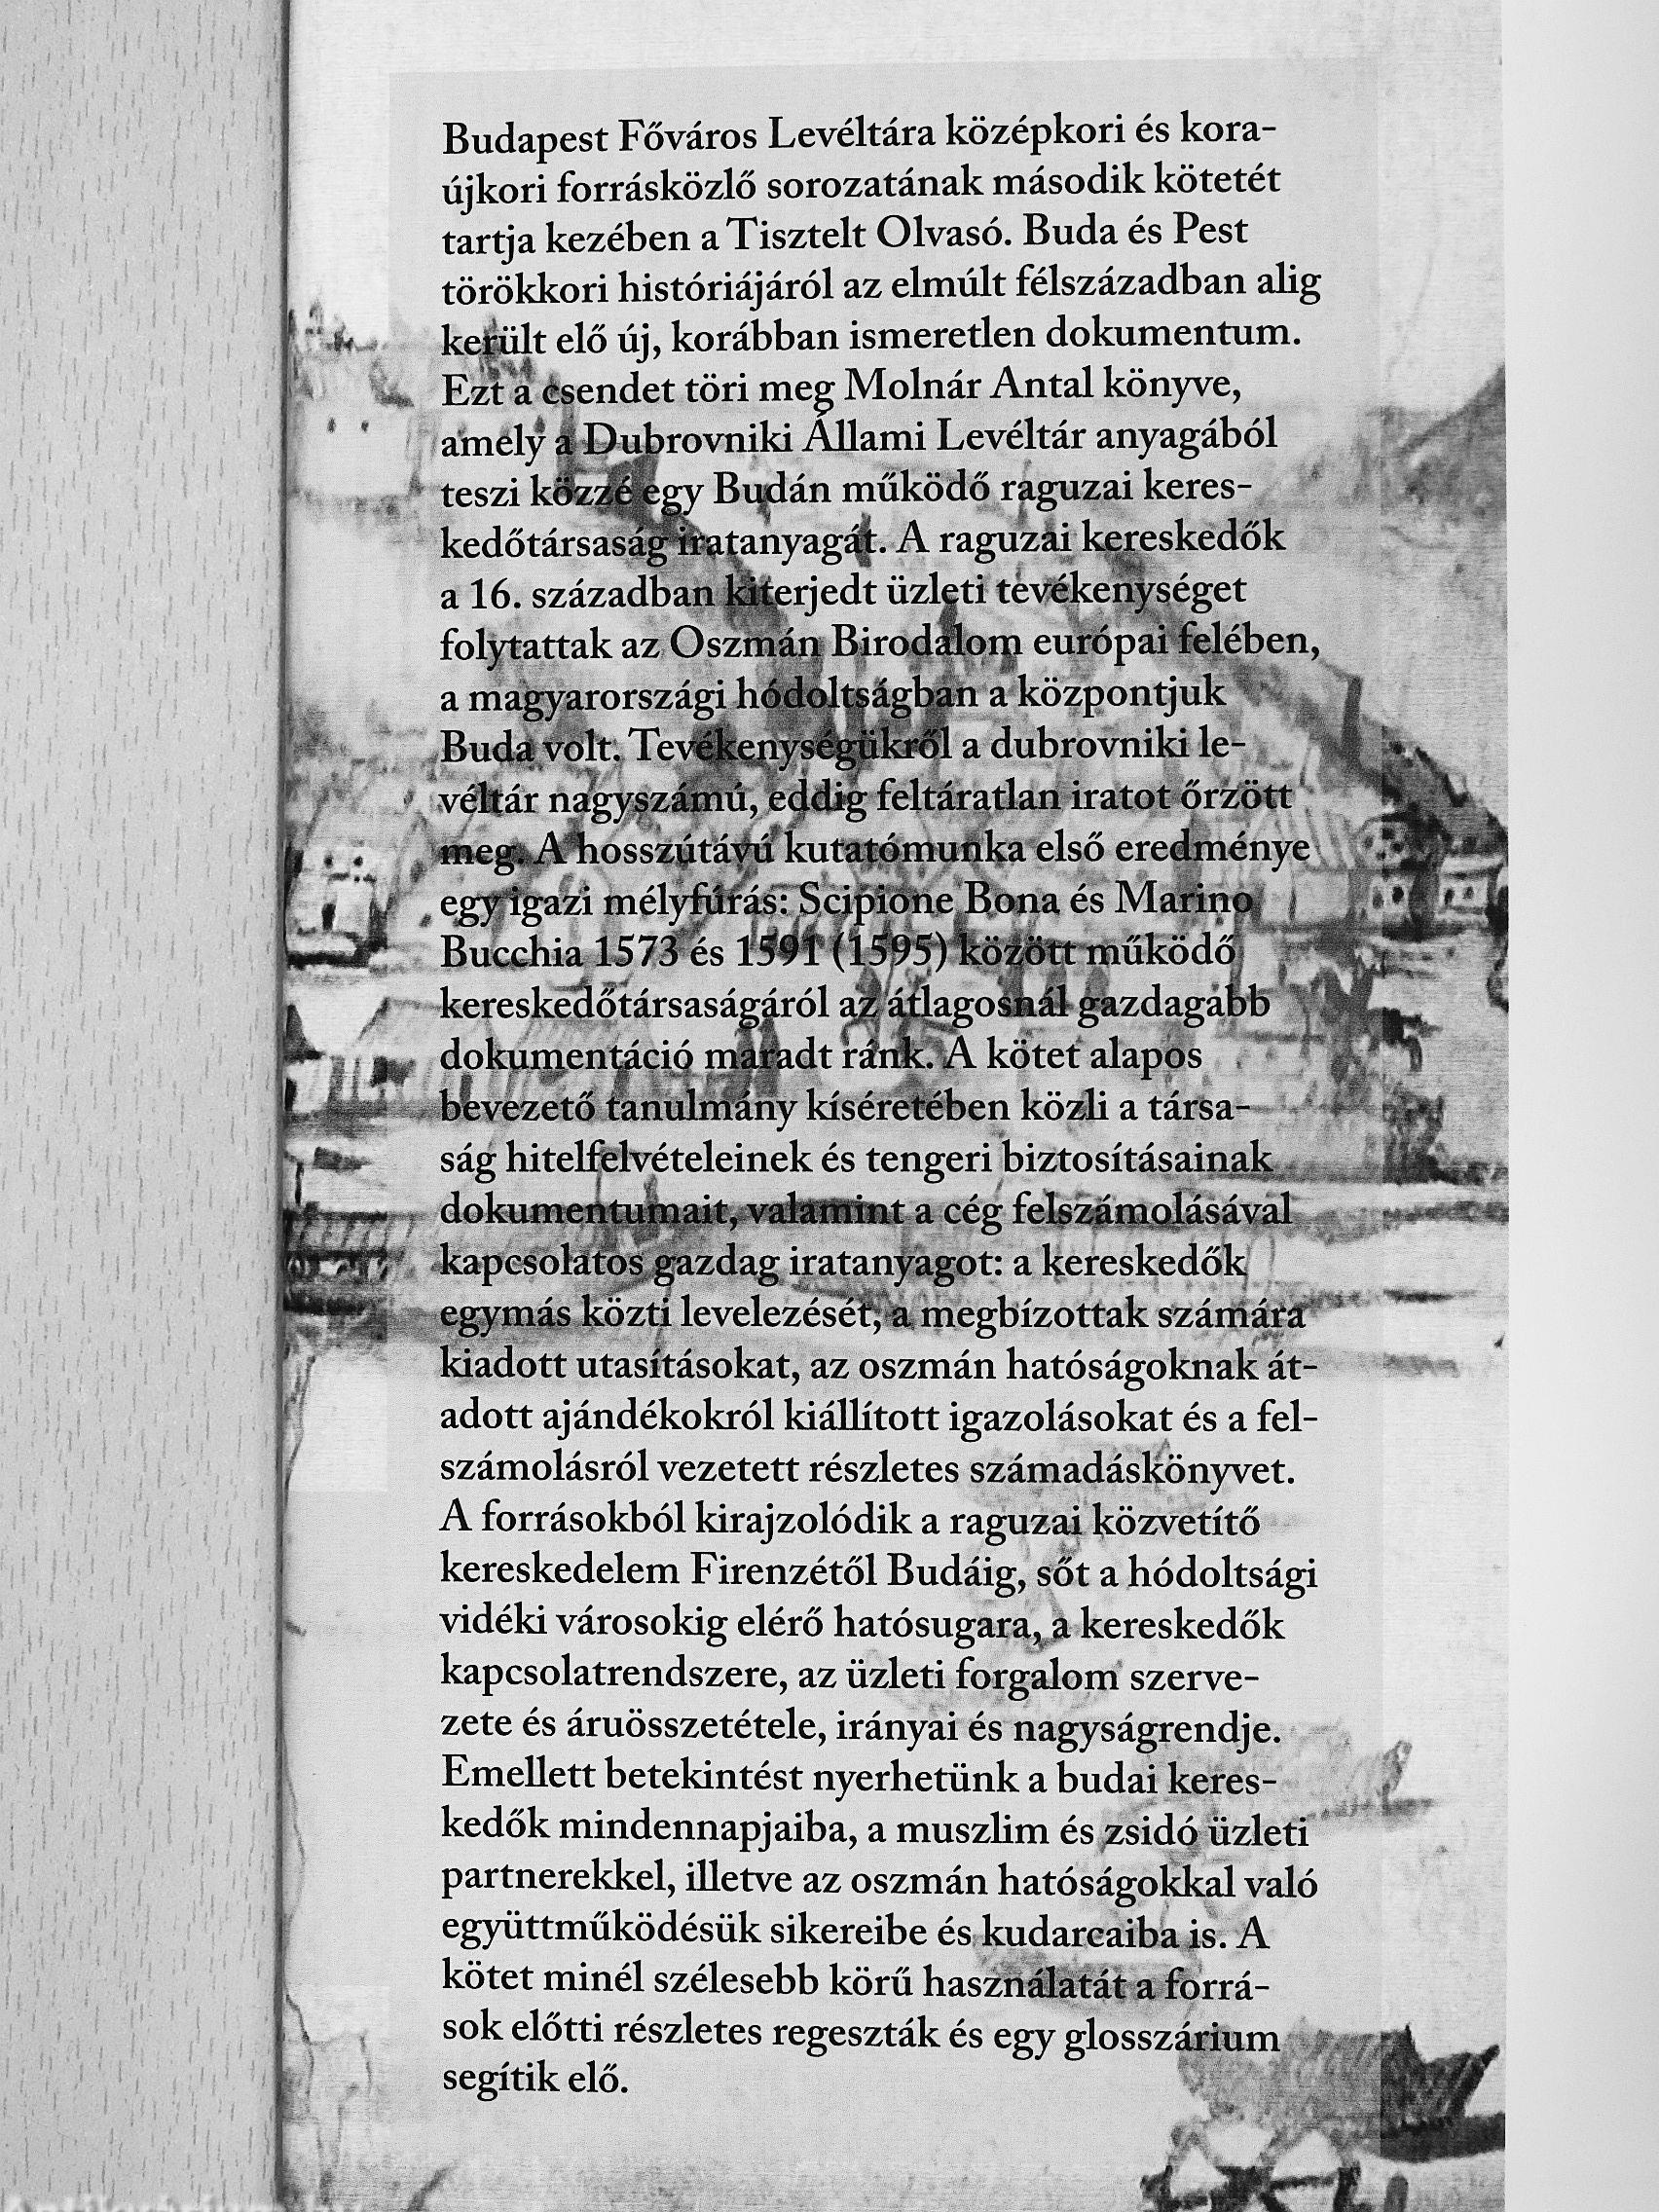 Budapest Főváros Levéltára középkori és kora-
újkori forrásközlő sorozatának második kötetét
tartja kezében a Tisztelt Olvasó. Buda és Pest
törökkori históriájáról az elmúlt félszázadban alig
került elő új, korábban ismeretlen dokumentum.
Ezt a csendet töri meg Molnár Antal könyve,
amely a Dubrovniki Állami Levéltár anyagából
teszi közzé egy Budán működő raguzai keres-
kedőtársaság iratanyagát. A raguzai kereskedők
a 16. században kiterjedt üzleti tevékenységet
folytattak az Oszmán Birodalom európai felében,
a magyarországi hódoltságban a központjuk
Buda volt. Tevékenységükről a dubrovniki le-
véltár nagyszámú, eddig feltáratlan iratot őrzött
meg. A hosszútávú kutatómunka első eredménye
egy igazi mélyfúrás: Scipione Bona és Marino
Bucchia 1573 és 1591 (1595) között működő
kereskedőtársaságáról az átlagosnál gazdagabb
dokumentáció maradt ránk. A kötet alapos
bevezető tanulmány kíséretében közli a társa-
ság hitelfelvételeinek és tengeri biztosításainak
dokumentumait, valamint a cég felszámolásával
kapcsolatos gazdag iratanyagot: a kereskedők
egymás közti levelezését, a megbízottak számára
kiadott utasításokat, az oszmán hatóságoknak át-
adott ajándékokról kiállított igazolásokat és a fel-
számolásról vezetett részletes számadáskönyvet.
A forrásokból kirajzolódik a raguzai közvetítő
kereskedelem Firenzétől Budáig, sőt a hódoltsági
vidéki városokig elérő hatósugara, a kereskedők
kapcsolatrendszere, az üzleti forgalom szerve-
zete és áruösszetétele, irányai és nagyságrendje.
Emellett betekintést nyerhetünk a budai keres-
kedők mindennapjaiba, a muszlim és zsidó üzleti
partnerekkel, illetve az oszmán hatóságokkal való
együttműködésük sikereibe és kudarcaiba is. A
kötet minél szélesebb körű használatát a forrá-
sok előtti részletes regeszták és egy glosszárium
segítik elő.